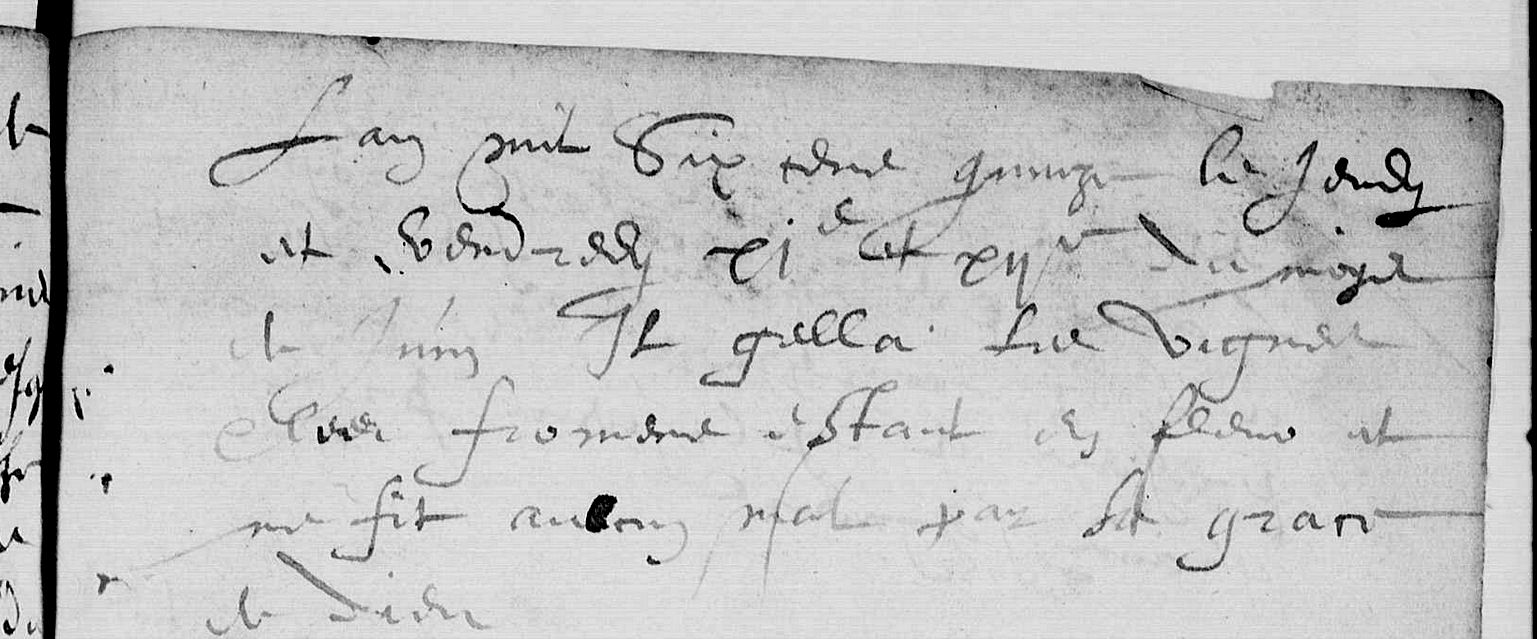 Lan mil Six cens quinze le Jeudy
et vendredy xie et xiie du moys
de Juing Il gella les vignes
et les fromens estant en fleur et
ne fit aulcun mal par la grace
de dieu